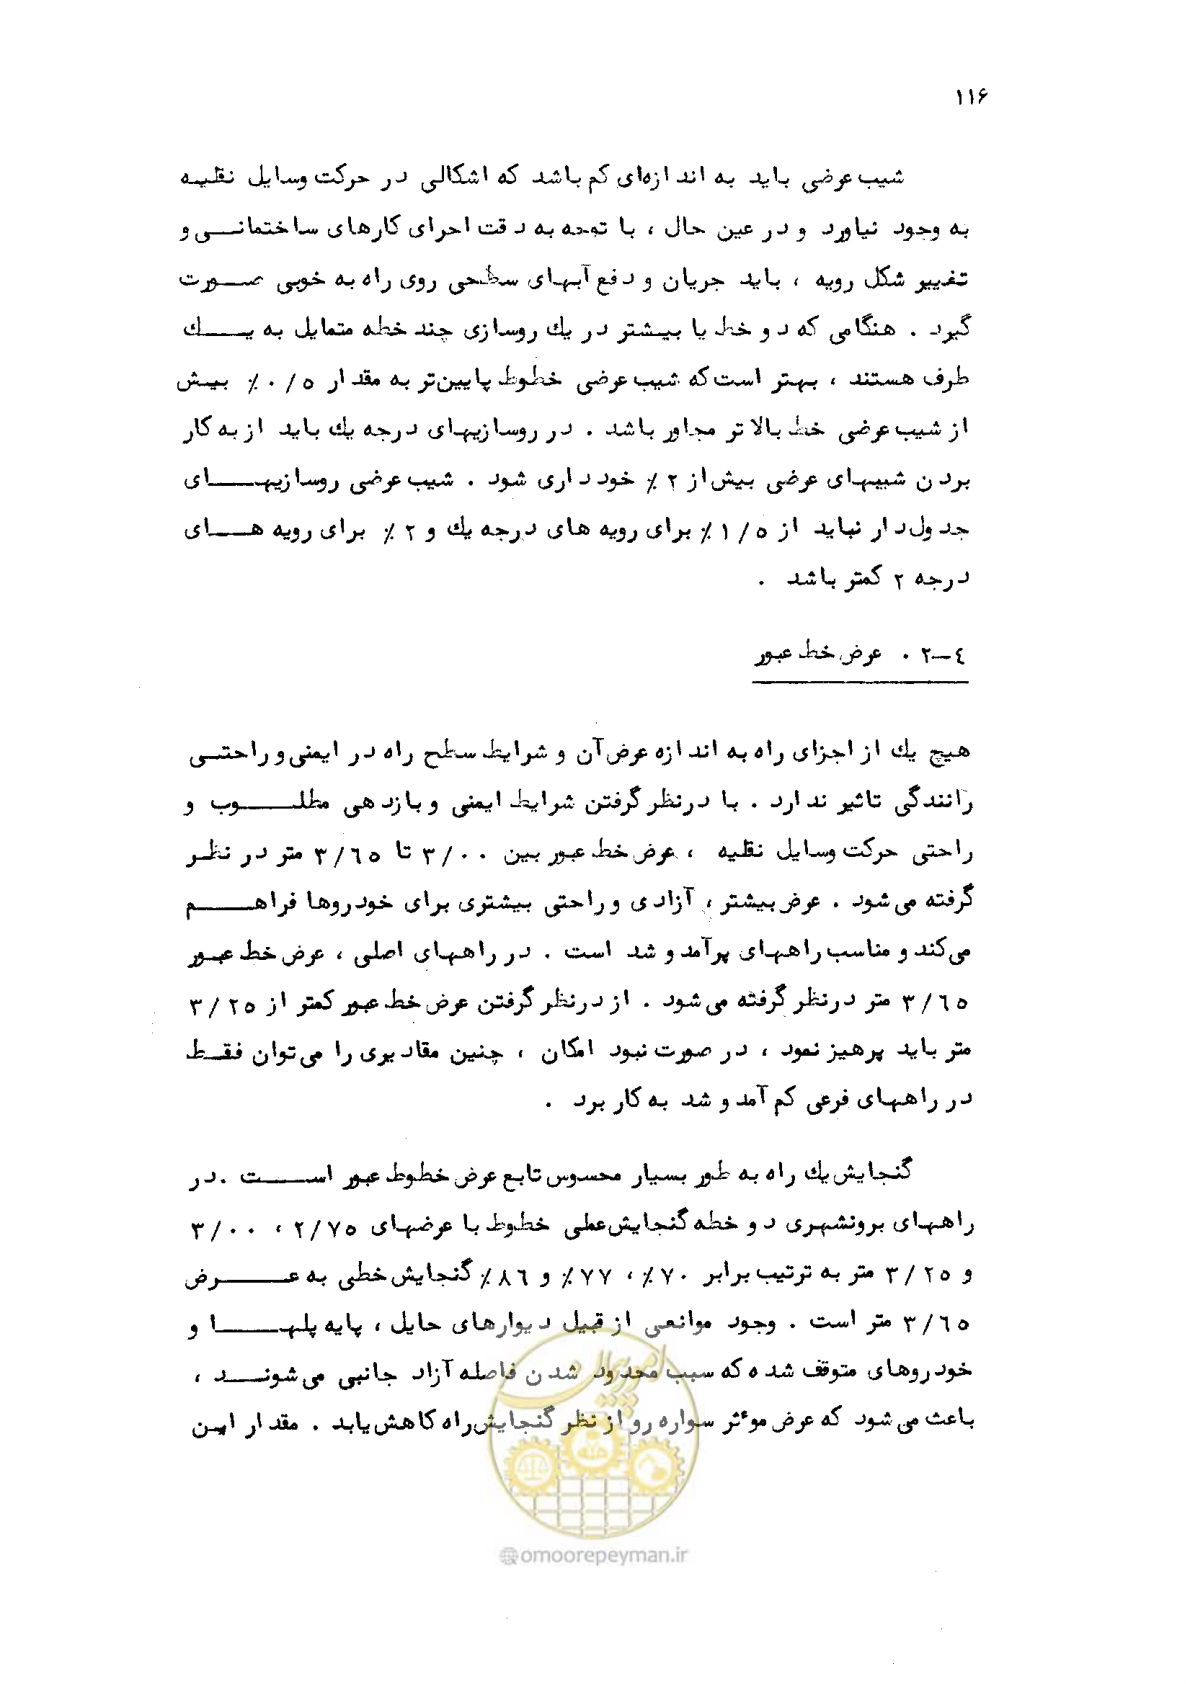 ۱۱۶
شیب عرضی باید به اندازه‌ای کم باشد که اشکالی در حرکت وسایل نقلیه
به وجود نیاورد و در عین حال ، با توجه به دقت اجرای کارهای ساختمانی و
تغییر شکل رویه ، باید جریان و دفع آبهای سطحی روی راه به خوبی صورت
گیرد . هنگامی که دو خط یا بیشتر در یك روسازی چند خطه متمایل به یك
طرف هستند ، بهتر است که شیب عرضی خطوط پایین‌تر به مقدار ۰/۵٪ بیش
از شیب عرضی خط بالاتر مجاور باشد . در روسازیهای درجه یك باید از به کار
بردن شیبهای عرضی بیش از ۲٪ خودداری شود . شیب عرضی روسازیهای
جدول‌دار نباید از ۱/۵٪ برای رویه های درجه یك و ۲٪ برای رویه های
درجه ۲ کمتر باشد .
٤-۲ . عرض خط عبور
هیچ یك از اجزای راه به اندازه عرض آن و شرایط سطح راه در ایمنی و راحتی
رانندگی تاثیر ندارد . با درنظر گرفتن شرایط ایمنی و بازدهی مطلوب و
راحتی حرکت وسایل نقلیه ، عرض خط عبور بین ۳/۰۰ تا ۳/٦۵ متر در نظر
گرفته می‌شود . عرض بیشتر ، آزادی و راحتی بیشتری برای خودروها فراهم
می‌کند و مناسب راههای پرآمد و شد است . در راههای اصلی ، عرض خط عبور
۳/٦۵ متر درنظر گرفته می‌شود . از درنظر گرفتن عرض خط عبور کمتر از ۳/۲۵
متر باید پرهیز نمود ، در صورت نبود امکان ، چنین مقادیری را می‌توان فقط
در راههای فرعی کم آمد و شد به کار برد .
گنجایش یك راه به طور بسیار محسوس تابع عرض خطوط عبور است . در
راههای برونشهری دو خطه گنجایش عملی خطوط با عرضهای ۲/۷۵ ، ۳/۰۰
و ۳/۲۵ متر به ترتیب برابر ۷۰٪ ، ۷۷٪ و ۸٦٪ گنجایش خطی به عرض
۳/٦۵ متر است . وجود موانعی از قبیل دیوارهای حایل ، پایه پلها و
خودروهای متوقف شده که سبب محدود شدن فاصله آزاد جانبی می‌شوند ،
باعث می‌شود که عرض موٴثر سواره رو از نظر گنجایش راه کاهش یابد . مقدار این
امور پیمان
@omoorepeyman.ir